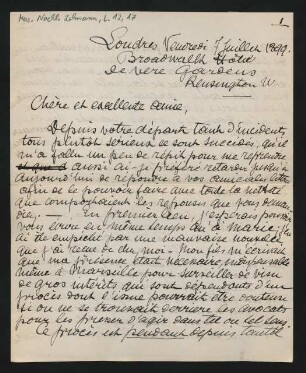 Mrs. Noëlle Lehmann, L. 12, 17
1
Londres Vendredi 7 Juillet 1899.
Broadwalk Hôtel
De Vere Gardens
Kensington W.
Chère et excellente amie,
Depuis votre départ tant d'incidents,
tous plutôt sérieux se sont succédés, qu'il
m'a fallu un peu de répit pour me reprendre
aussi ai-je préféré retarder jusqu'à
aujourd'hui de répondre à vos
afin de le pouvoir faire avec toute la netteté
que comportaient les réponses que vous
En premier lieu, j'espérais pouvoir
vous écrire en même temps qu'à Marie; j'en
ai été empêché par une mauvaise nouvelle
que j'ai reçue de mon fils m'écrivant
que ma présence était nécessaire, indispensable
même à Marseille pour surveiller de visu
de gros intérêts qui sont dépendants d'un
procès dont l'issue pourrait être douteuse
si on ne se trouvait derrière les avocats
pour les presser d'agir dans tel ou tel sens.
Ce procès est pendant depuis tantôt